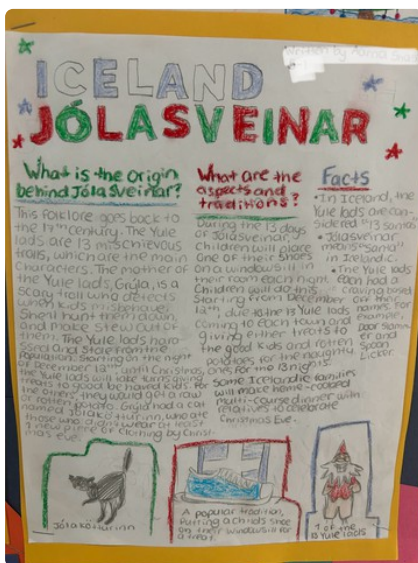 Written by
ICELAND
JÓLASVEINAR
What is the origin
behind Jólasveinar?
This folklore goes back to
the 17th century. The Yule
lads are 13 mischievous
trolls, which are the main
characters. The mother of
the Yule lads, Grýla, is a
scary troll who detects
when kids misbehave.
She'll hunt them down,
and make stew out of
them. The Yule lads hara-
ssed and stole from the
population. Starting on the night
of December 12th until Christmas,
the Yule lads will take turns giving
treats to good behaved kids. For
the others, they would get a raw
or rotten potato. Grýla had a cat
named Jólakötturinn, who ate
those who didn't wear at least
1 new piece of clothing by Christ-
mas eve.
What are the
aspects and
traditions?
During the 13 days
of Jólasveinar,
children will place
one of their shoes
on a windowsill in
their room each night.
Children will do this
starting from December
12th, due to the 13 Yule lads
coming to each town and
giving either treats to
the good kids and rotten
potatoes for the naughty
ones for the 13 nights.
Some Icelandic families
will make home-cooked
multi-course dinner with
relatives to celebrate
Christmas Eve.
Facts
•In Iceland, the
Yule lads are con-
sidered "13 santas"
•"Jólasveinar"
means "santa"
in Icelandic.
•The Yule lads
each had a
craving based
on their
names. For
example,
Door Slamm-
er and
Spoon
Licker.
Jólakötturinn
A popular tradition,
putting a child's shoe
on their windowsill for
a treat.
1 of the
13 Yule lads